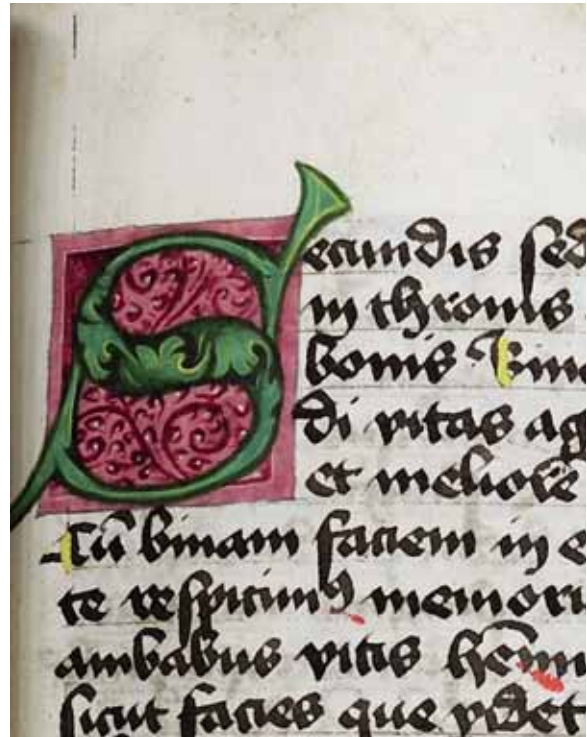 Secundis sed
in thronis
bonis Bina
di vitas ag
et meliorē
Cū binam faciem in e
te respicimꝰ memori
ambabus vitis hēm
sicut facies que ydet